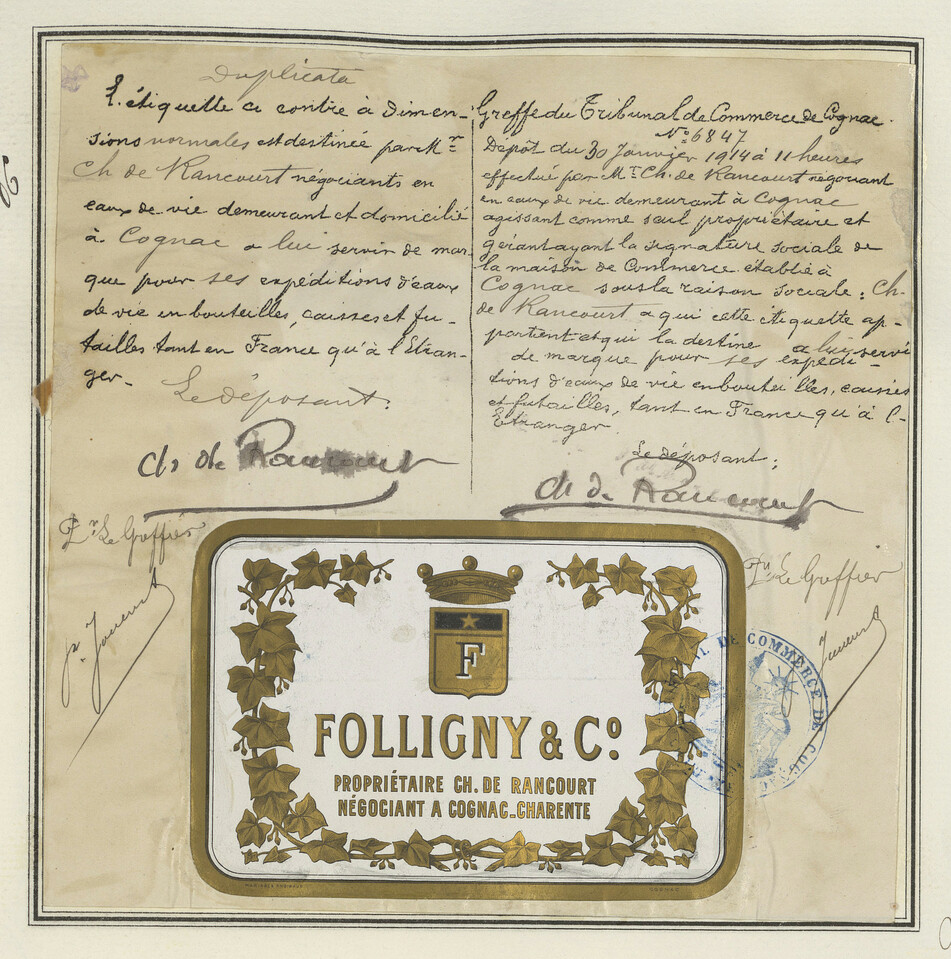 Duplicata
L'étiquette ci contre à dimen-
sions normales est destinée par Mr
Ch de Rancourt négociants en
eaux de vie demeurant et domicilié
à Cognac a lui servir de mar-
que pour ses expéditions d'eaux
de vie en bouteilles, caisses et fu-
tailles tant en France qu'à l'Etran-
ger.
Le déposant:
Ch de Rancourt
Pr Le Greffier
Greffe du Tribunal de Commerce de Cognac.
No 6847
Dépôt du 30 Janvier 1914 à 11 heures
effectué par Mr Ch. de Rancourt négociant
en eaux de vie demeurant à Cognac
agissant comme seul propriétaire et
gérant ayant la signature sociale de
la maison de Commerce établie à
Cognac sous la raison sociale: Ch.
de Rancourt a qui cette étiquette ap-
partient et qui la destine a lui servir
de marque pour ses expédi-
tions d'eaux de vie en bouteilles, caisses
et futailles, tant en France qu'à l'-
Etranger.
Le déposant;
Ch de Rancourt
Pr Le Greffier
F
FOLLIGNY & Co.
PROPRIÉTAIRE CH. DE RANCOURT
NÉGOCIANT A COGNAC-CHARENTE
DE COMMERCE DE COGNAC